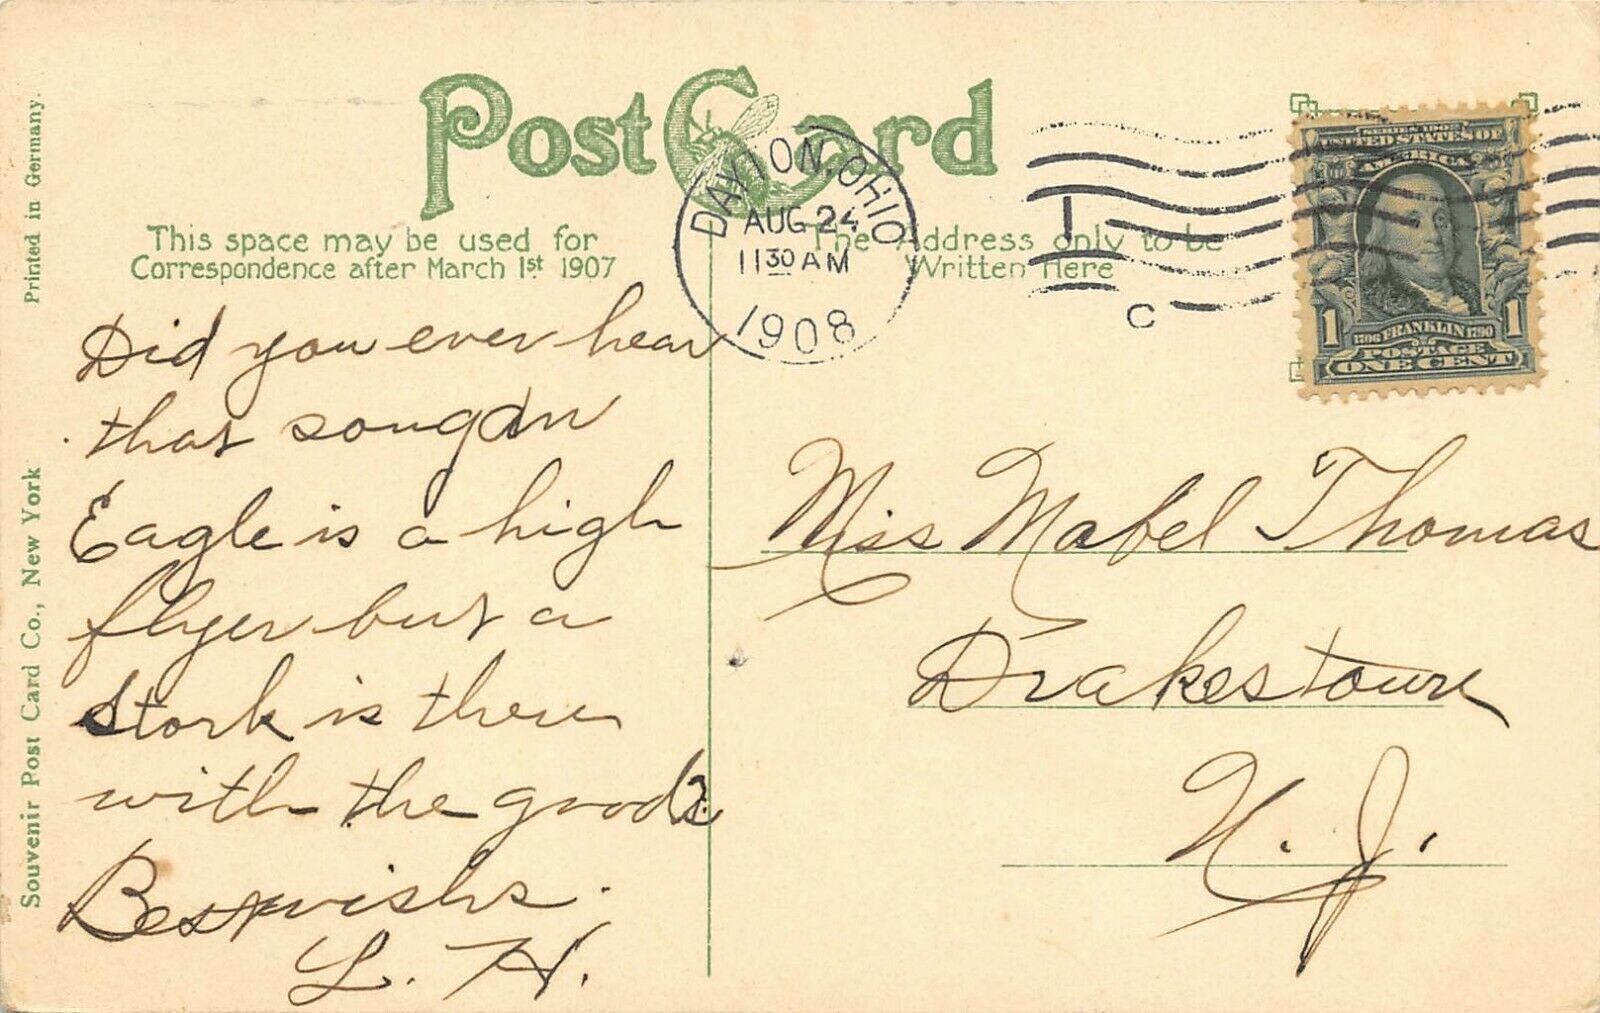 Post Card
This space may be used for
Correspondence after March 1st 1907
The Address only to be
Written Here
DAYTON, OHIO
AUG 24
11 30 AM
1908
1
C
SERIES 1902
UNITED STATES OF
AMERICA
1 1706 FRANKLIN 1790 1
POSTAGE
ONE CENT
Did you ever hear
that song
Eagle is a high
flyer but a
Stork is there
with the goods
Best wishs.
L. H.
Miss Mabel Thomas
Drakestown
N. J.
Printed in Germany.
Souvenir Post Card Co., New York